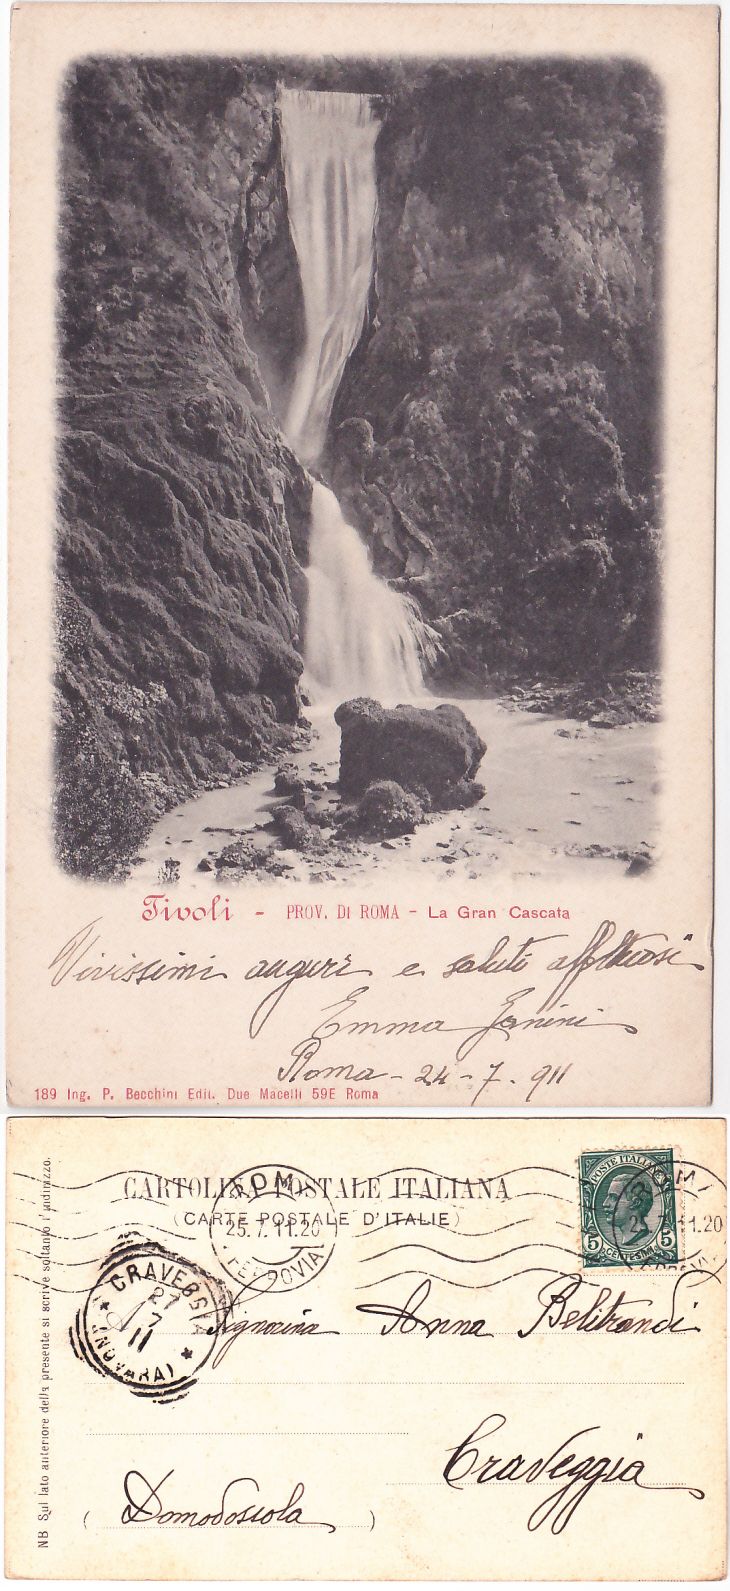 Tivoli - PROV. DI ROMA - La Gran Cascata
Vivissimi auguri e saluti affettuosi
Emma Janini
Roma - 24 - 7 . 911
189 Ing. P. Becchini Edit. Due Macelli 59E Roma
CARTOLINA POSTALE ITALIANA
(CARTE POSTALE D'ITALIE)
ROMA
25.7.11.20
FERROVIA
POSTE ITALIANE
5 CENTESIMI 5
25.7.11.20
CRAVEGGIA
27
7
11
(NOVARA)
Signorina Anna Belitrandi
Craveggia
(Domodossola)
NB Sul lato anteriore della presente si scrive soltanto l'indirizzo.